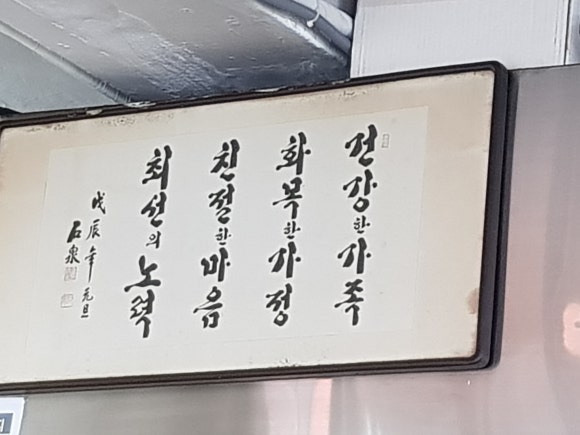 건강한가족
화목한가정
친절한마음
최선의노력
戊辰年 元旦
石泉